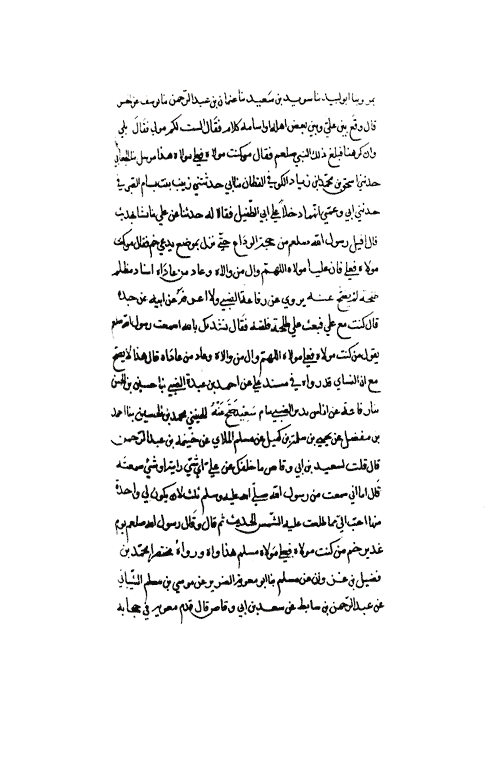 ابو لبيد ثنا سويد بن سعيد ثنا عثمان بن عبد الرحمن ثنا يوسف عن
قال وقع بين علي وبين بعض كلام فقال الست لكم مولى فقال بلى
وان كرهنا فبلغ ذلك النبي صلعم فقال من كنت مولاه فعلي مولاه هذا مرسل
حدثني بن محمد بن زياد الكوفي القطان ثنا ابي حدثتني زينب بنت بسام
حدثني ابي وعمتي دخلا على ابي الطفيل فقالا له حدثنا عن علي
قال اقبل رسول الله صلعم من حجة الوداع حتى نزل بموضع يدعى خم فقال من كنت
مولاه فعلي فان عليا مولاه اللهم وال من والاه وعاد من عاداه اسناد مظلم
يروي عن رفاعة الضبي عن ابيه عن جده
قال كنت مع علي فبعث علي طلحة فلقيه فقال نشدتك بالله اسمعت رسول الله صلعم
يقول من كنت مولاه فعلي مولاه اللهم وال من والاه وعاد من عاداه قال هذا لا يصح
مع ان النساي قد رواه في مسند علي عن احمد بن عبدة الضبي ثنا حسين بن الحسن
ثنا رفاعة عن اياس بن الضبي محمد بن الحسين ثنا احمد
بن مفضل عن يحيى بن سلمة بن كهيل عن مسلم الملاي عن خيثمة بن عبد الرحمن
قال قلت لسعد بن ابي وقاص ما خلفك عن علي اي شي رايته او شي سمعته
قال اما اني سمعت من رسول الله صلى الله عليه وسلم ثلاث لان يكون لي واحدة
منها احب الي مما طلعت عليه الشمس الحديث ثم قال وقال رسول الله صلعم يوم
غدير خم من كنت مولاه فعلي مولاه مسلم هذا واه ورواه مختصرا محمد بن
فضيل بن غزوان عن مسلم ثنا ابو معوية الضرير عن موسى بن مسلم الشيباني
عن عبد الرحمن بن سابط عن سعد بن ابي وقاص قال قدم معوية في